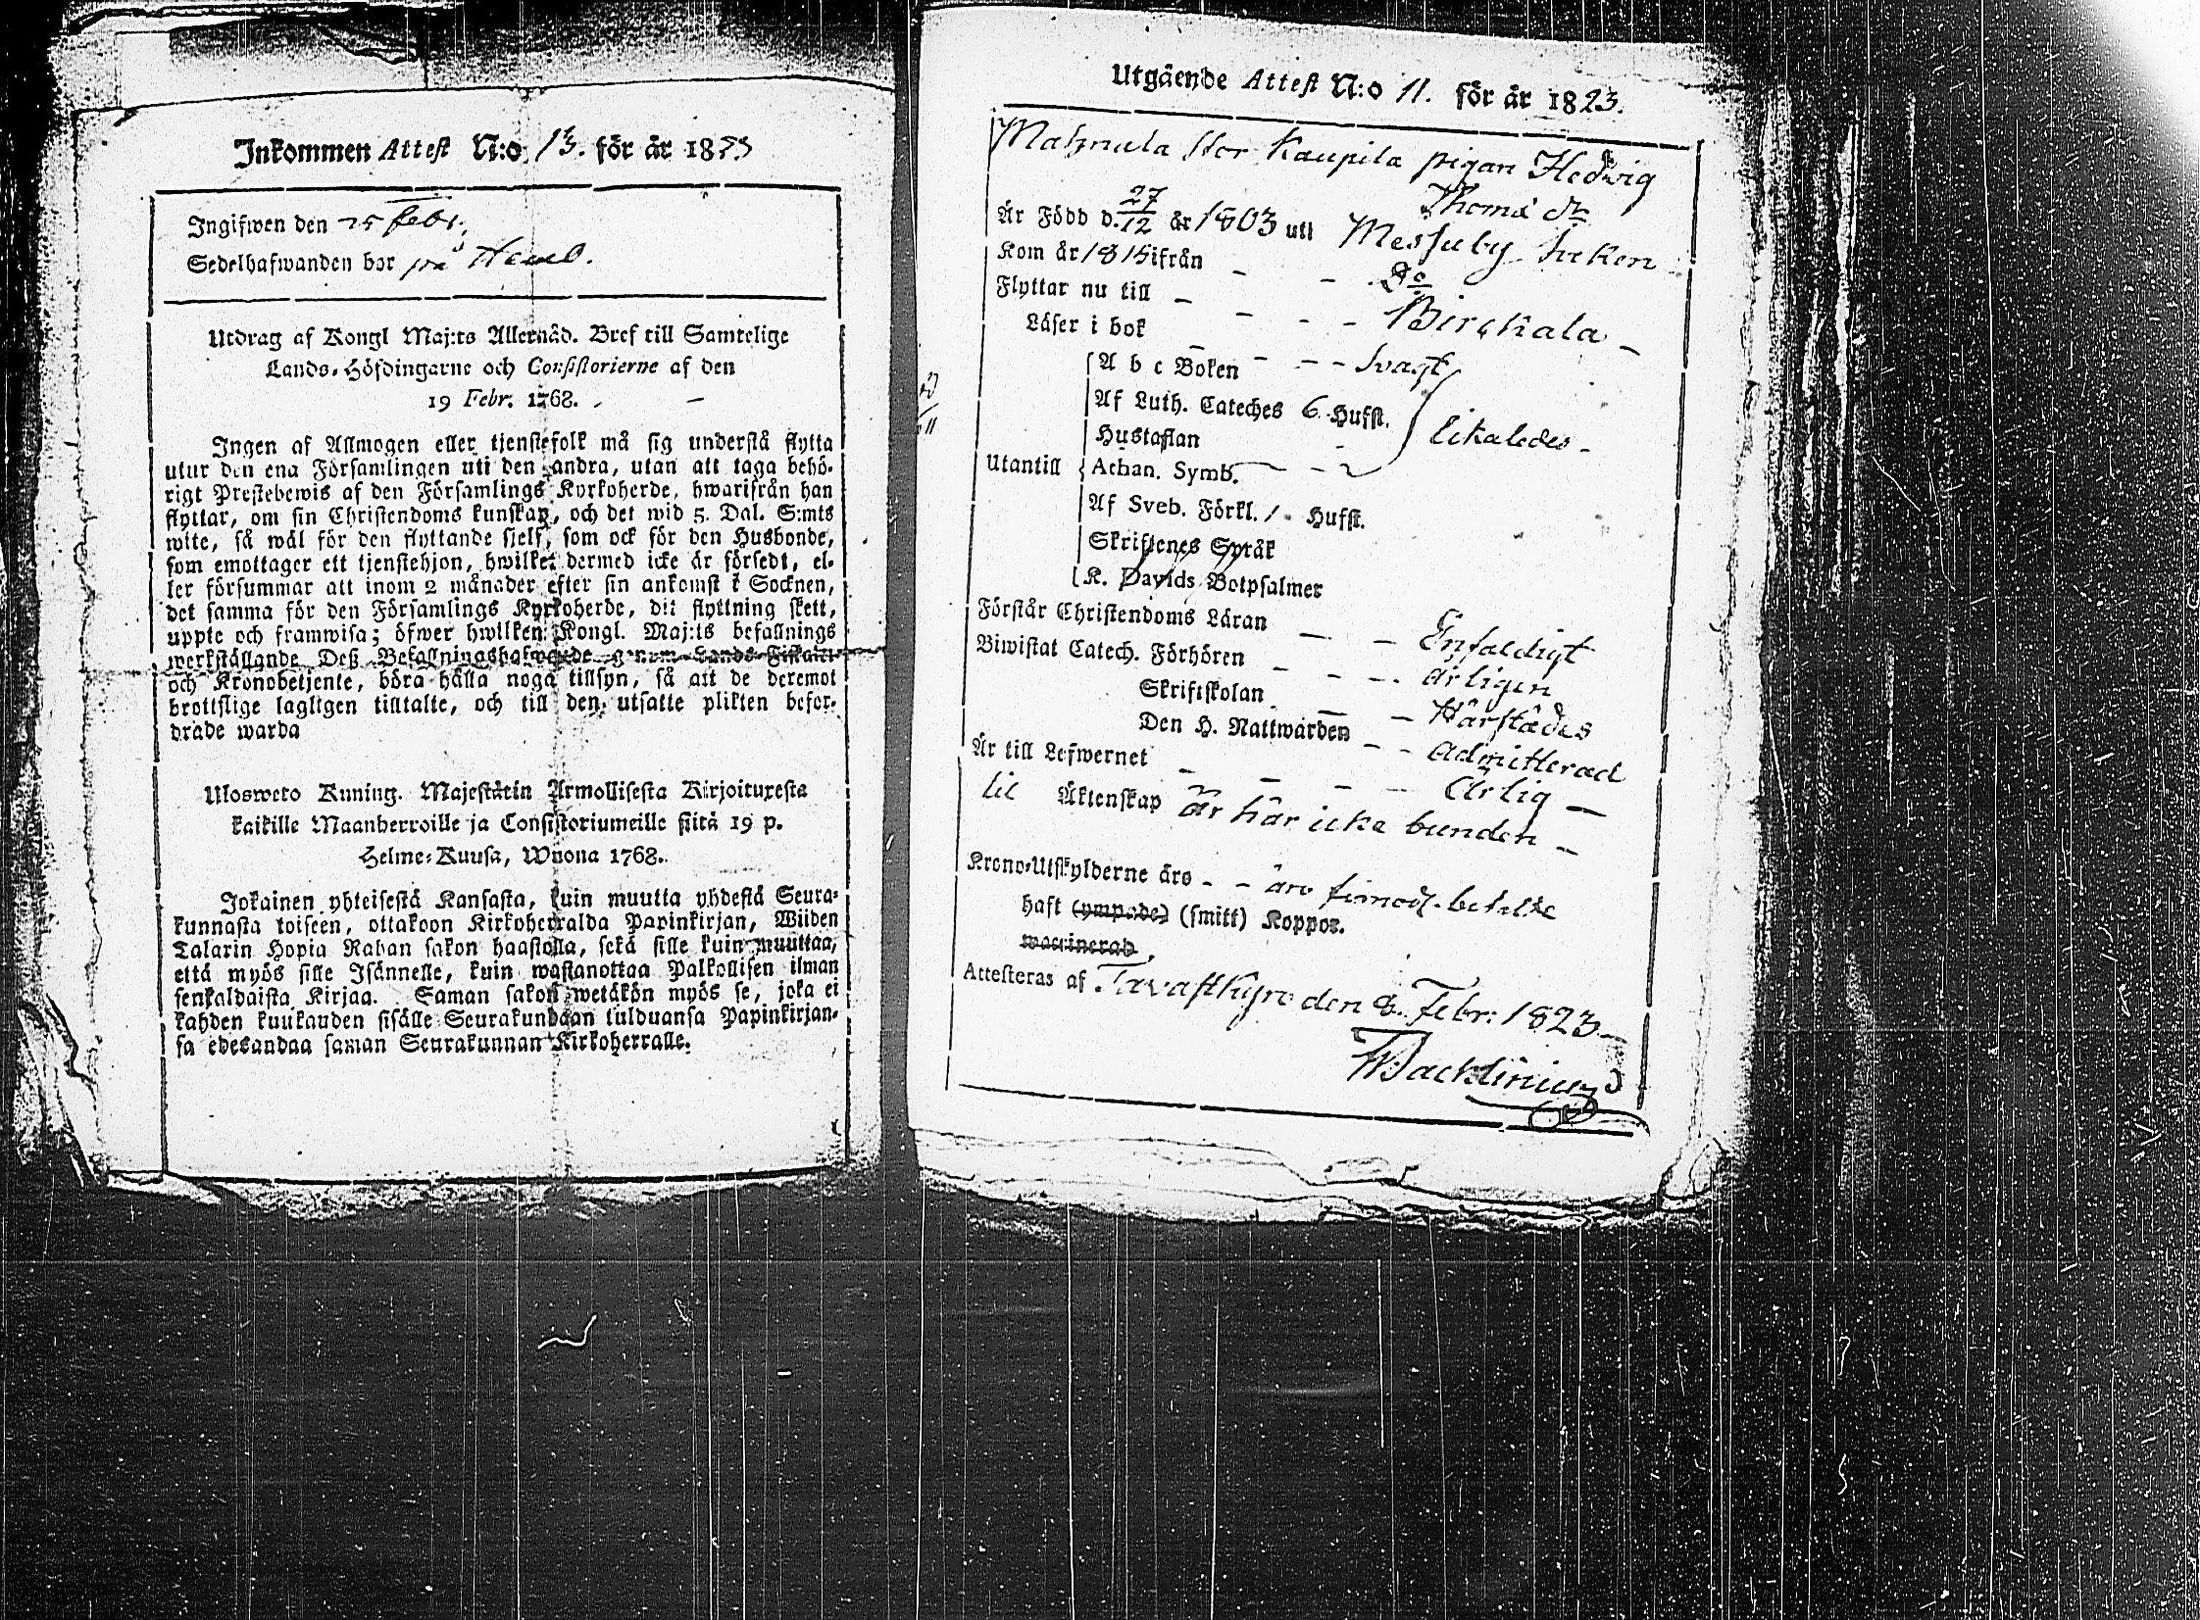 Inkommen Attest N:o 13. för år 1823
Ingifwen den 25 febr.
Sedelhafwanden bor på
Utdrag af Kongl Maj:ts Allernåd. Bref till Samtelige
Lands-Höfdingarne och Consistorierne af den
19 Febr. 1768.
Ingen af Allmogen eller tjenstefolk må sig understå flytta
utur den ena Församlingen uti den andra, utan att taga behö-
rigt Prestebewis af den Församlings Kyrkoherde, hwarifrån han
flyttar, om sin Christendoms kunskap, och det wid 5. Dal. S:mts
wite, så wäl för den flyttande sjelf, som ock för den Husbonde,
som emottager ett tjenstehjon, hwilket dermed icke är försedt, el-
ler försummar att inom 2 månader efter sin ankomst i Socknen,
det samma för den Församlings Kyrkoherde, dit flyttning skett,
uppte och framwisa; öfwer hwilken Kongl. Maj:ts befallnings
werkställande Deß Befallningshafwande genom Lands-Fiskaler
och Kronobetjente, böra hålla noga tillsyn, så att de deremot
brottslige lagligen tilltalte, och till den utsatte plikten befor-
drade warda
Ulosweto Kuning. Majestätin Armollisesta Kirjoituxesta
kaikille Maanherroille ja Consistoriumeille siitä 19 p.
Helme-Kuusa, Wuona 1768.
Jokainen yhteisestä Kansasta, kuin muutta yhdestä Seura-
kunnasta toiseen, ottakoon Kirkoherralda Papinkirjan, Wiiden
Talarin Hopia Rahan sakon haastolla, sekä sille kuin muuttaa,
että myös sille Isännelle, kuin wastanottaa Palkollisen ilman
senkaldaista Kirjaa. Saman sakon wetäkön myös se, joka ei
kahden kuukauden sisälle Seurakundaan tulduansa Papinkirjan-
sa edesandaa saman Seurakunnan Kirkoherralle.
Utgående Attest N:o 11. för år 1823.
Mahnula stor Kaupila pigan Hedwig
Thomæ dr
Är Född d. 27/12 år 1803 uti Messuby Socken
Kom år 1815 ifrån - - Do
Flyttar nu till - - - - Birckala -
Läser i bok - - - - Svagt
A b c Boken
Af Luth. Cateches 6 Hufst. likaledes -
Hustaflan
Utantill Athan. Symb.
Af Sveb. Förkl. / Hufst.
Skriftenes Språk
K. Davids Botpsalmer
Förstår Christendoms Läran - - Enfaldigt
Biwistat Catech. Förhören - - - Årligen
Skriftskolan - - Härstädes
Den H. Nattwarden - - admitterad
Är till Lefwernet - - - - Ärlig -
til Äktenskap är här icke bunden -
Krono-Utskylderne äro - - äro betalte
haft (ympade) (smitt) Koppor.
waccinerad
Attesteras af Tavastkyro den 8. Febr: 1823 -
Backlinius